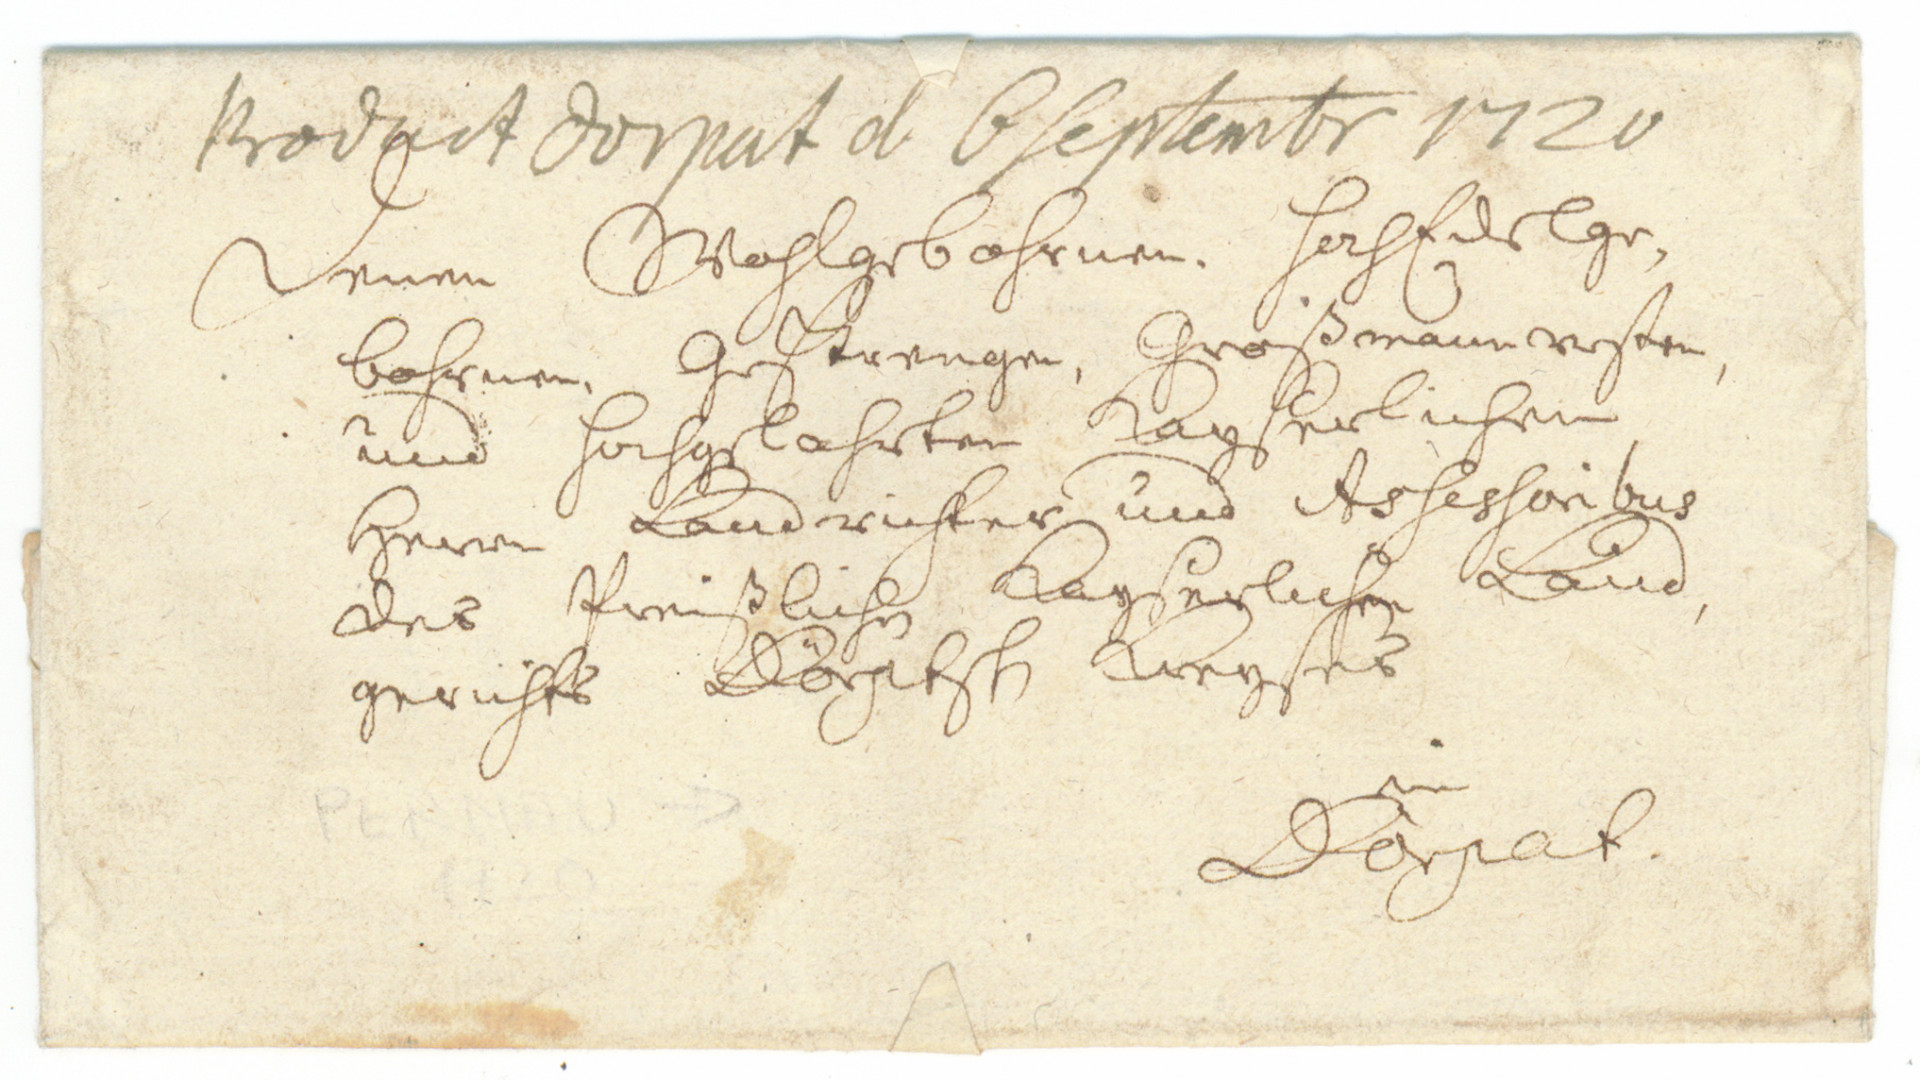 Product Dorpat d 6 Septembr 1720
Denen Wohlgebohrnen. HochEdelge,
bohrnen, Gestrengen, Großmannvesten,
und Hochgelahrten Kayserlichen
Herrn Landrichter und Assessoribus
des Preißlichen Kayserlichen Land,
gerichts Dörptsch Kreyses
in
Dörpat.
PERNAU →
1720